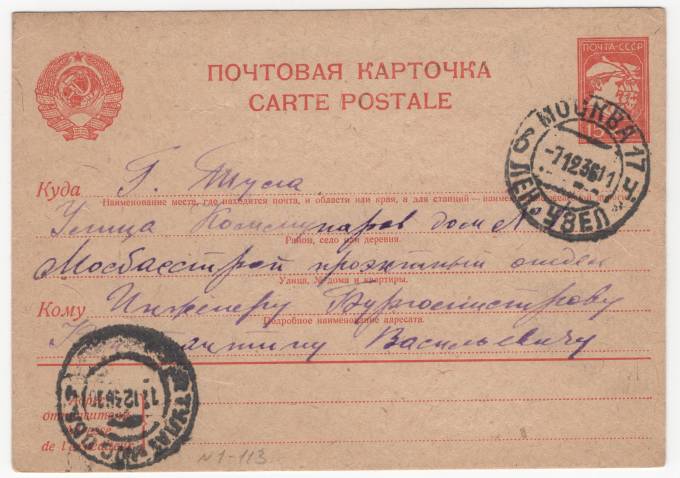 ПОЧТА-СССР
15
ПОЧТОВАЯ КАРТОЧКА
CARTE POSTALE
МОСКВА 17 Ч.
6
-7 12 36 11
ЛЕН. УЗЕЛ
Куда г. Тула
Наименование места, где находится почта, и области или края, а для станций —
Улица Коммунаров дом
Район, село или деревня.
Мосбасстрой проэктный отдел
Улица, № дома и квартиры.
Кому Инженеру Бургомистрову
Подробное наименование адресата.
Васильевичу
ТУЛА
12 36
de l'
N1-113